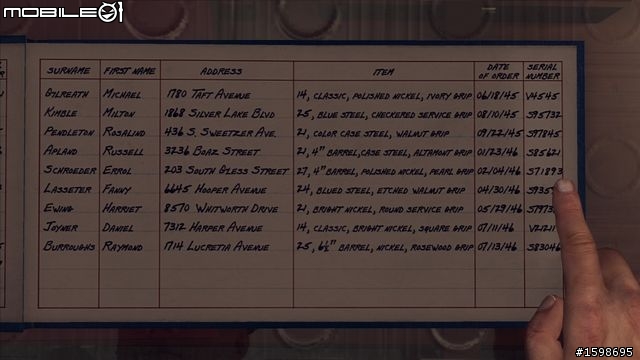 MOBILE01
SURNAME FIRST NAME ADDRESS ITEM DATE OF ORDER SERIAL NUMBER
GILREATH MICHAEL 1780 TAFT AVENUE 14, CLASSIC, POLISHED NICKEL, IVORY GRIP 06/18/45 V4545
KIMBLE MILTON 1868 SILVER LAKE BLVD 25, BLUE STEEL, CHECKERED SERVICE GRIP 08/10/45 S95732
PENDLETON ROSALIND 436 S. SWEETZER AVE. 21, COLOR CASE STEEL, WALNUT GRIP 09/22/45 S97845
APLAND RUSSELL 3236 BOAZ STREET 21, 4" BARREL, CASE STEEL, ALTAMONT GRIP 01/23/46 S85621
SCHROEDER ERROL 203 SOUTH GLESS STREET 27, 4" BARREL, POLISHED NICKEL, PEARL GRIP 02/04/46 S71893
LASSETER FANNY 6645 HOOPER AVENUE 24, BLUED STEEL, ETCHED WALNUT GRIP 04/30/46
EWING HARRIET 8570 WHITWORTH DRIVE 21, BRIGHT NICKEL, ROUND SERVICE GRIP 05/29/46
JOYNER DANIEL 7312 HARPER AVENUE 14, CLASSIC, BRIGHT NICKEL, SQUARE GRIP 07/11/46
BURROUGHS RAYMOND 1714 LUCRETIA AVENUE 25, 6½" BARREL, NICKEL, ROSEWOOD GRIP 07/13/46 S83046
#1598695